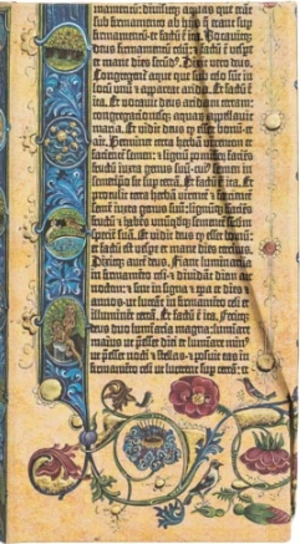 mamentũ: divisitq; aquas que erãt
sub firmamento ab hijs q̃ erant sup
firmamentũ: et factũ ẽ ita. Vocavitq;
deus firmamentũ celũ: & factũ ẽ vespe
et mane dies secũdꝰ. Dixit vero deus.
Congregent̃ aque que sub celo sũt in
locũ unũ & appareat arida. Et factũ ẽ
ita. Et vocavit deus aridam terram:
congregacionesq; aquaꝝ appellavit
maria. Et vidit deus ꝙ esset bonũ. et
ait. Germinet terra herbã virentem et
facientẽ semen: & lignũ pomiferũ faciẽs
fructũ iuxta genus suũ. cuiꝰ semen in
semetipo sit sup terrã. Et factũ ẽ ita. Et
protulit terra herbã virentẽ & facientẽ
semẽ iuxta genus suũ: lignũq; faciẽs
fructũ & habẽs unũqdq; sementẽ scdm
speciẽ suã. Et vidit deus ꝙ esset bonũ:
et factũ est vespe et mane dies tercius.
Dixitq; aut deus. Fiant luminaria
in firmamẽto celi & dividãt diem ac
noctem: & sint in signa & tpa et dies &
annos. ut luceãt in firmamẽto celi et
illuminẽt terrã. Et factũ ẽ ita. Fecitq;
deus duo luminaria magna: luminare
maius ut pesset diei et luminare minꝰ
ut pesset nocti & stellas. & posuit eas in
firmamẽto celi ut lucerent sup terrã: et